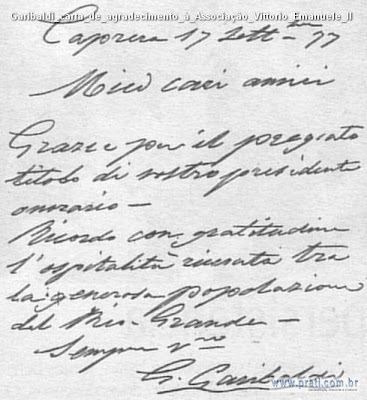 Garibaldi_carta_de_agradecimento_à_Associação_Vittorio_Emanuele_II
Caprera 17 Sett.bre 77
Miei cari amici
Grazie per il pregiato
titolo di vostro presidente
onorario—
Ricordo con gratitudine
l'ospitalità ricevuta tra
la generosa popolazione
del Rio-Grande—
Sempre vro
G. Garibaldi
www.prati.com.br